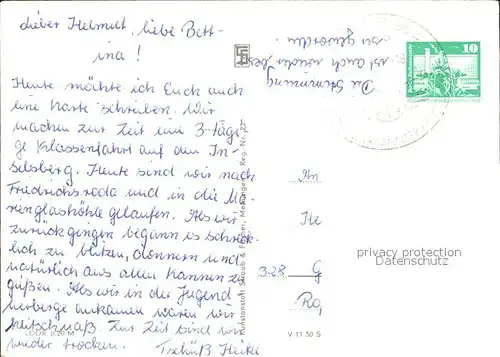 Lieber Helmut, liebe Bett-
ina!
Heute möchte ich Euch auch
eine Karte schreiben. Wir
machen zur Zeit eine 3-täg-
ge Klassenfahrt auf den In-
selsberg. Heute sind wir nach
Friedrichsroda und in die Ma-
rienglashöhle gelaufen. Als wir
zurückgingen begann es schreck-
lich zu blitzen, donnern und
natürlich aus allen Kannen zu
gießen. Als wir in die Jugend
herberge ankamen waren wir
kletschnaß. Zur Zeit sind wir
wieder trocken. Tschüß Heike
Die Stimmung
ist auch wieder besser
geworden.
10
An
He
328 G
Ro
privacy protection
Datenschutz
Kunstanstalt Straub & Fischer, Meiningen Reg.-Nr.
DDR 0,20 M
V 11 50 S